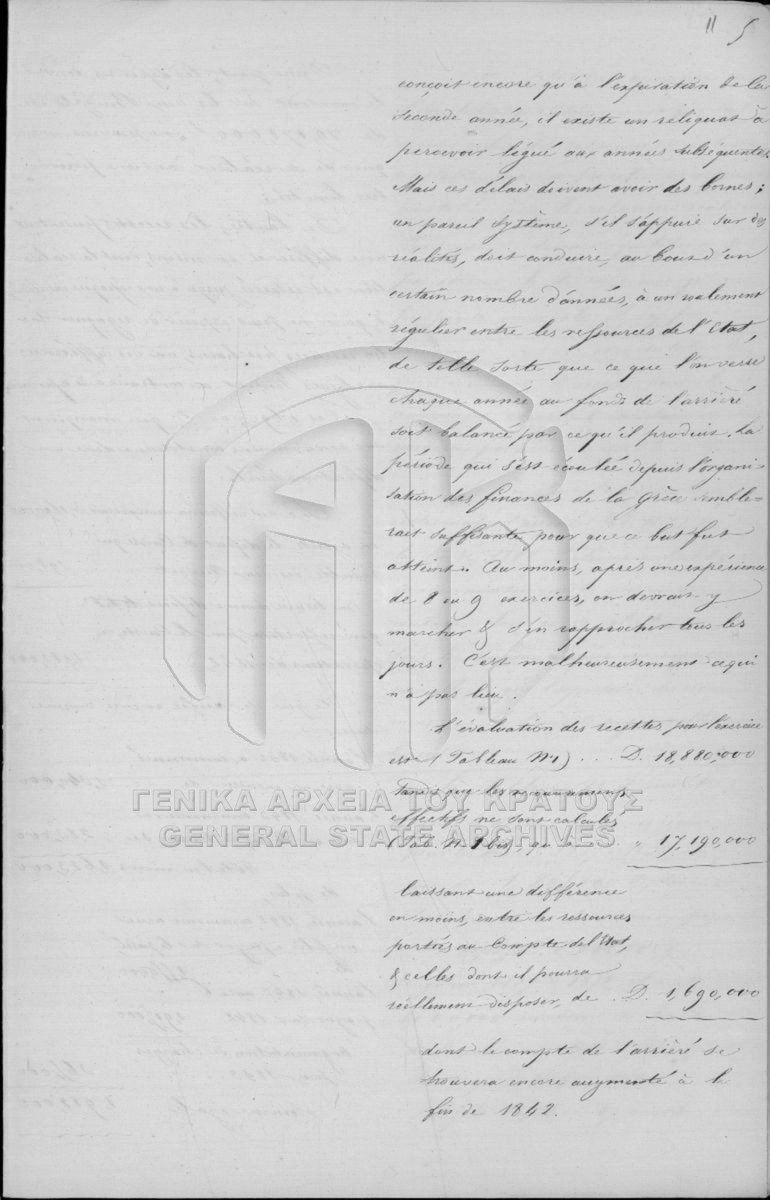 11 5
conçoit encore qu'à l'expiration de la
seconde année, il existe un reliquat à
percevoir légué aux années subséquentes.
Mais ces délais doivent avoir des bornes;
un pareil système, s'il s'appuie sur des
réalités, doit conduire, au bout d'un
certain nombre d'années, à un roulement
régulier entre les ressources de l'Etat,
de telle sorte que ce que l'on verse
chaque année au fonds de l'arriéré
soit balancé par ce qu'il produit. La
période qui s'est écoulée depuis l'organi-
sation des finances de la Grèce semble-
rait suffisante pour que ce but fut
atteint. Au moins, après une expérience
de 8 ou 9 exercices, on devrait y
marcher & s'en rapprocher tous les
jours. C'est malheureusement ce qui
n'a pas lieu.
L'évaluation des recettes pour l'exercice
est (Tableau No 1) . . . D. 18,880,000
Tandis que les recouvrements
effectifs ne sont calculés
(Tab. No 1 bis), qu'à . . . " 17,190,000
laissant une différence
en moins, entre les ressources
portées au Compte de l'Etat,
& celles dont il pourra
réellement disposer, de . D. 1,690,000
dont le compte de l'arriéré se
trouvera encore augmenté à la
fin de 1842.
ΓΕΝΙΚΑ ΑΡΧΕΙΑ ΤΟΥ ΚΡΑΤΟΥΣ
GENERAL STATE ARCHIVES